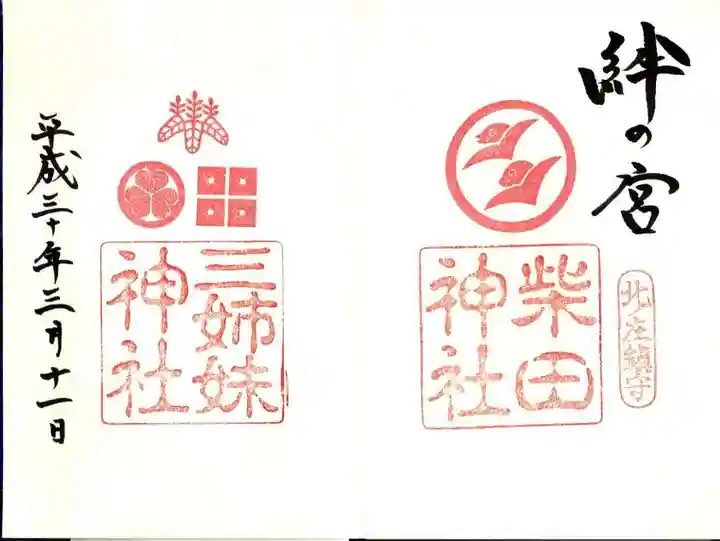 絆の宮
北庄鎮守
柴田
神社
三姉妹
神社
平成三十年三月十一日